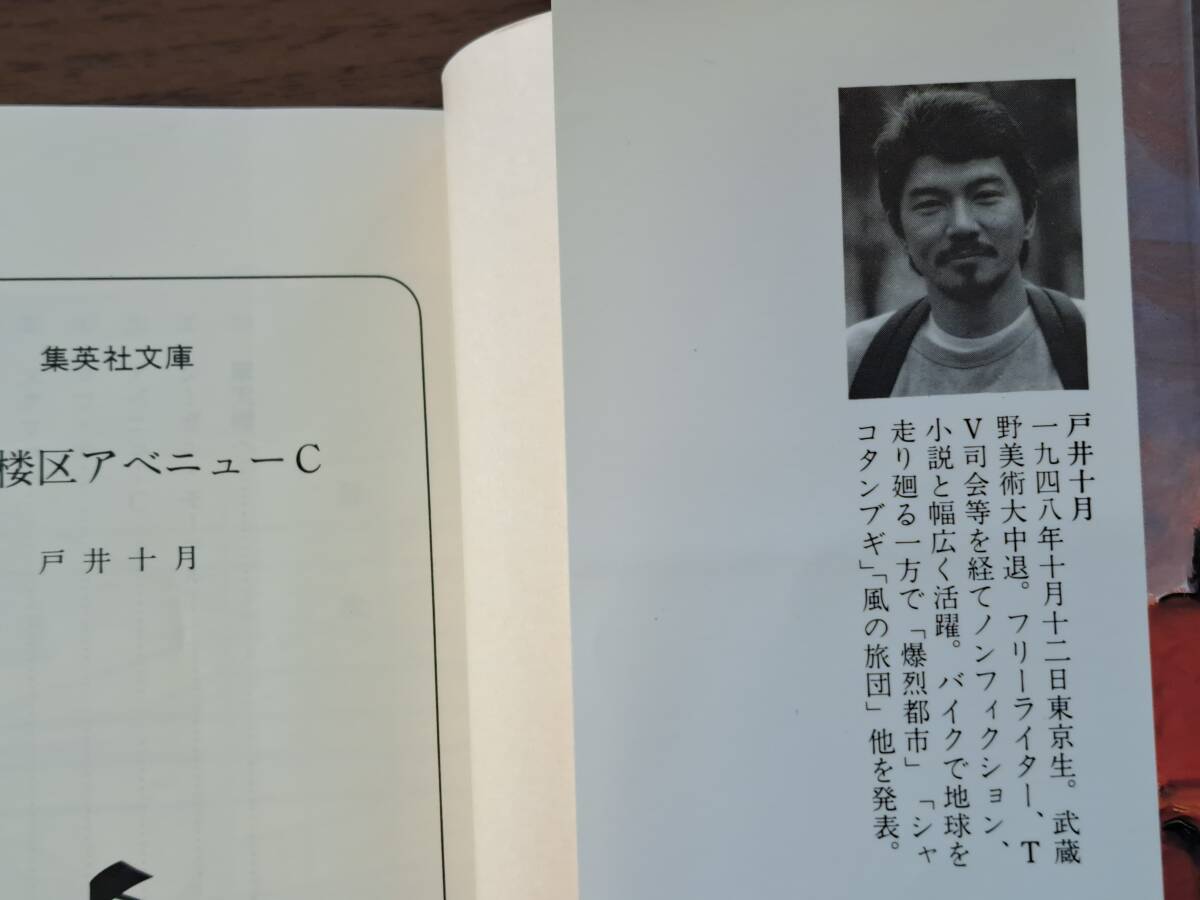 集英社文庫
楼区アベニューC
戸井十月
戸井十月
一九四八年十月十二日東京生。武蔵
野美術大中退。フリーライター、T
V司会等を経てノンフィクション、
小説と幅広く活躍。バイクで地球を
走り廻る一方で「爆烈都市」「シャ
コタンブギ」「風の旅団」他を発表。